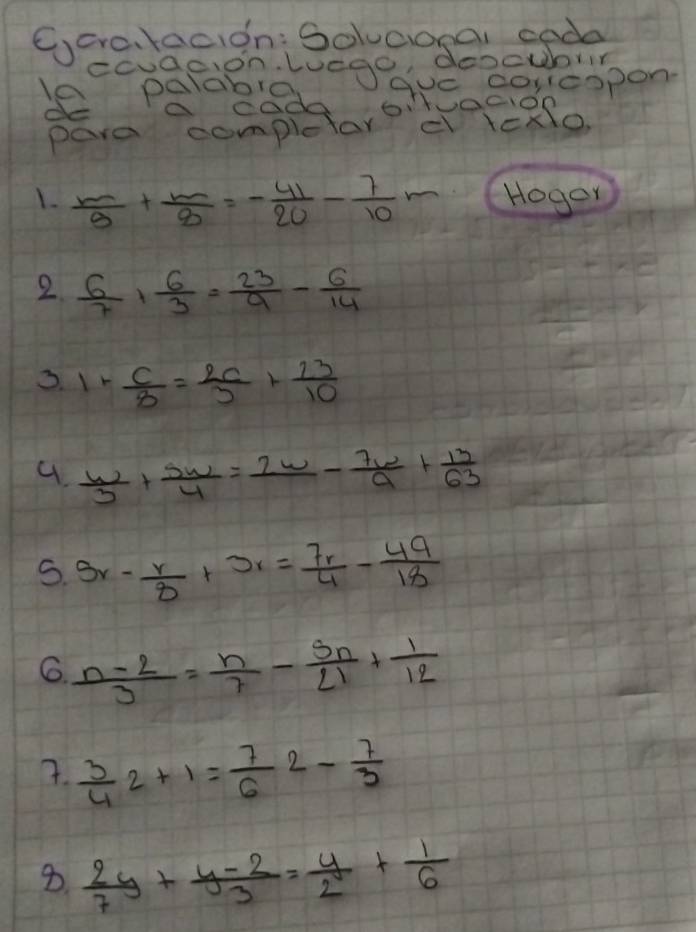 Ejercitación: Solucionar cada
ecuación. Luego, descubrir
la palabra que correspon-
de a cada situación
para completar el texto.
1. m/9 + m/8 = -41/20 - 7/10 m. Hogar
2. 6/7 + 6/3 = 23/9 - 6/14
3. 1 + c/8 = 2c/3 + 23/10
4. w/3 + 5w/4 = 2w - 7w/9 + 13/63
5. 5r - r/8 + 3r = 7r/4 - 49/18
6. n-2/3 = n/7 - 5n/21 + 1/12
7. 3/4 2 + 1 = 7/6 2 - 7/3
8. 2/7 y + y-2/3 = y/2 + 1/6